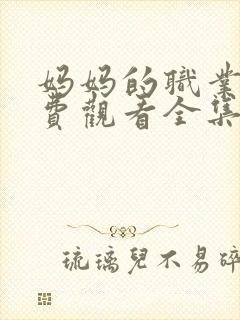 妈妈的職業
費觀看全集
琉璃兒不易碎